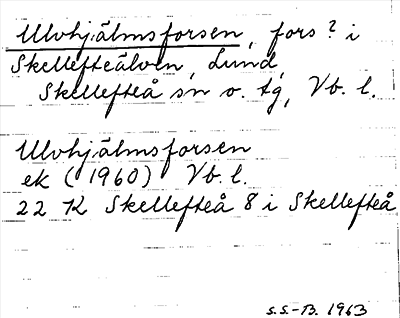 Ulvhjälmsforsen, fors? i
Skellefteälven, Lund,
Skellefteå sn o. tg, Vb. l.
Ulvhjälmsforsen
ek (1960) Vb. l.
22 K Skellefteå 8 i Skellefteå
S.S.-B. 1963